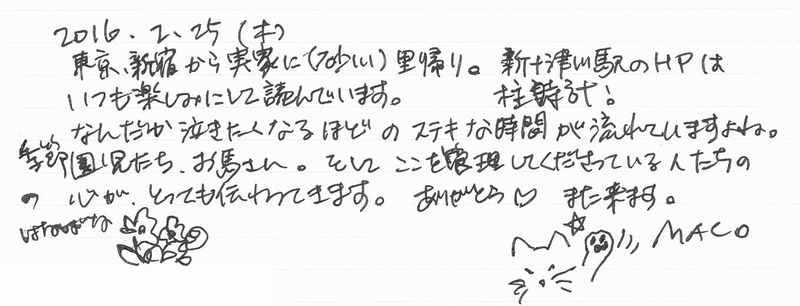 2016.2.25(木)
東京、新宿から実家に(砂川)里帰り。新十津川駅のHPは
いつも楽しみにして読んでいます。 柱時計!
なんだか泣きたくなるほどのステキな時間が流れていますよね。
園児たち、お馬さん。そしてここを管理してくださっている人たちの
心が、とっても伝わってきます。ありがとう♡ また来ます。
季節
の
はなばな
MACO